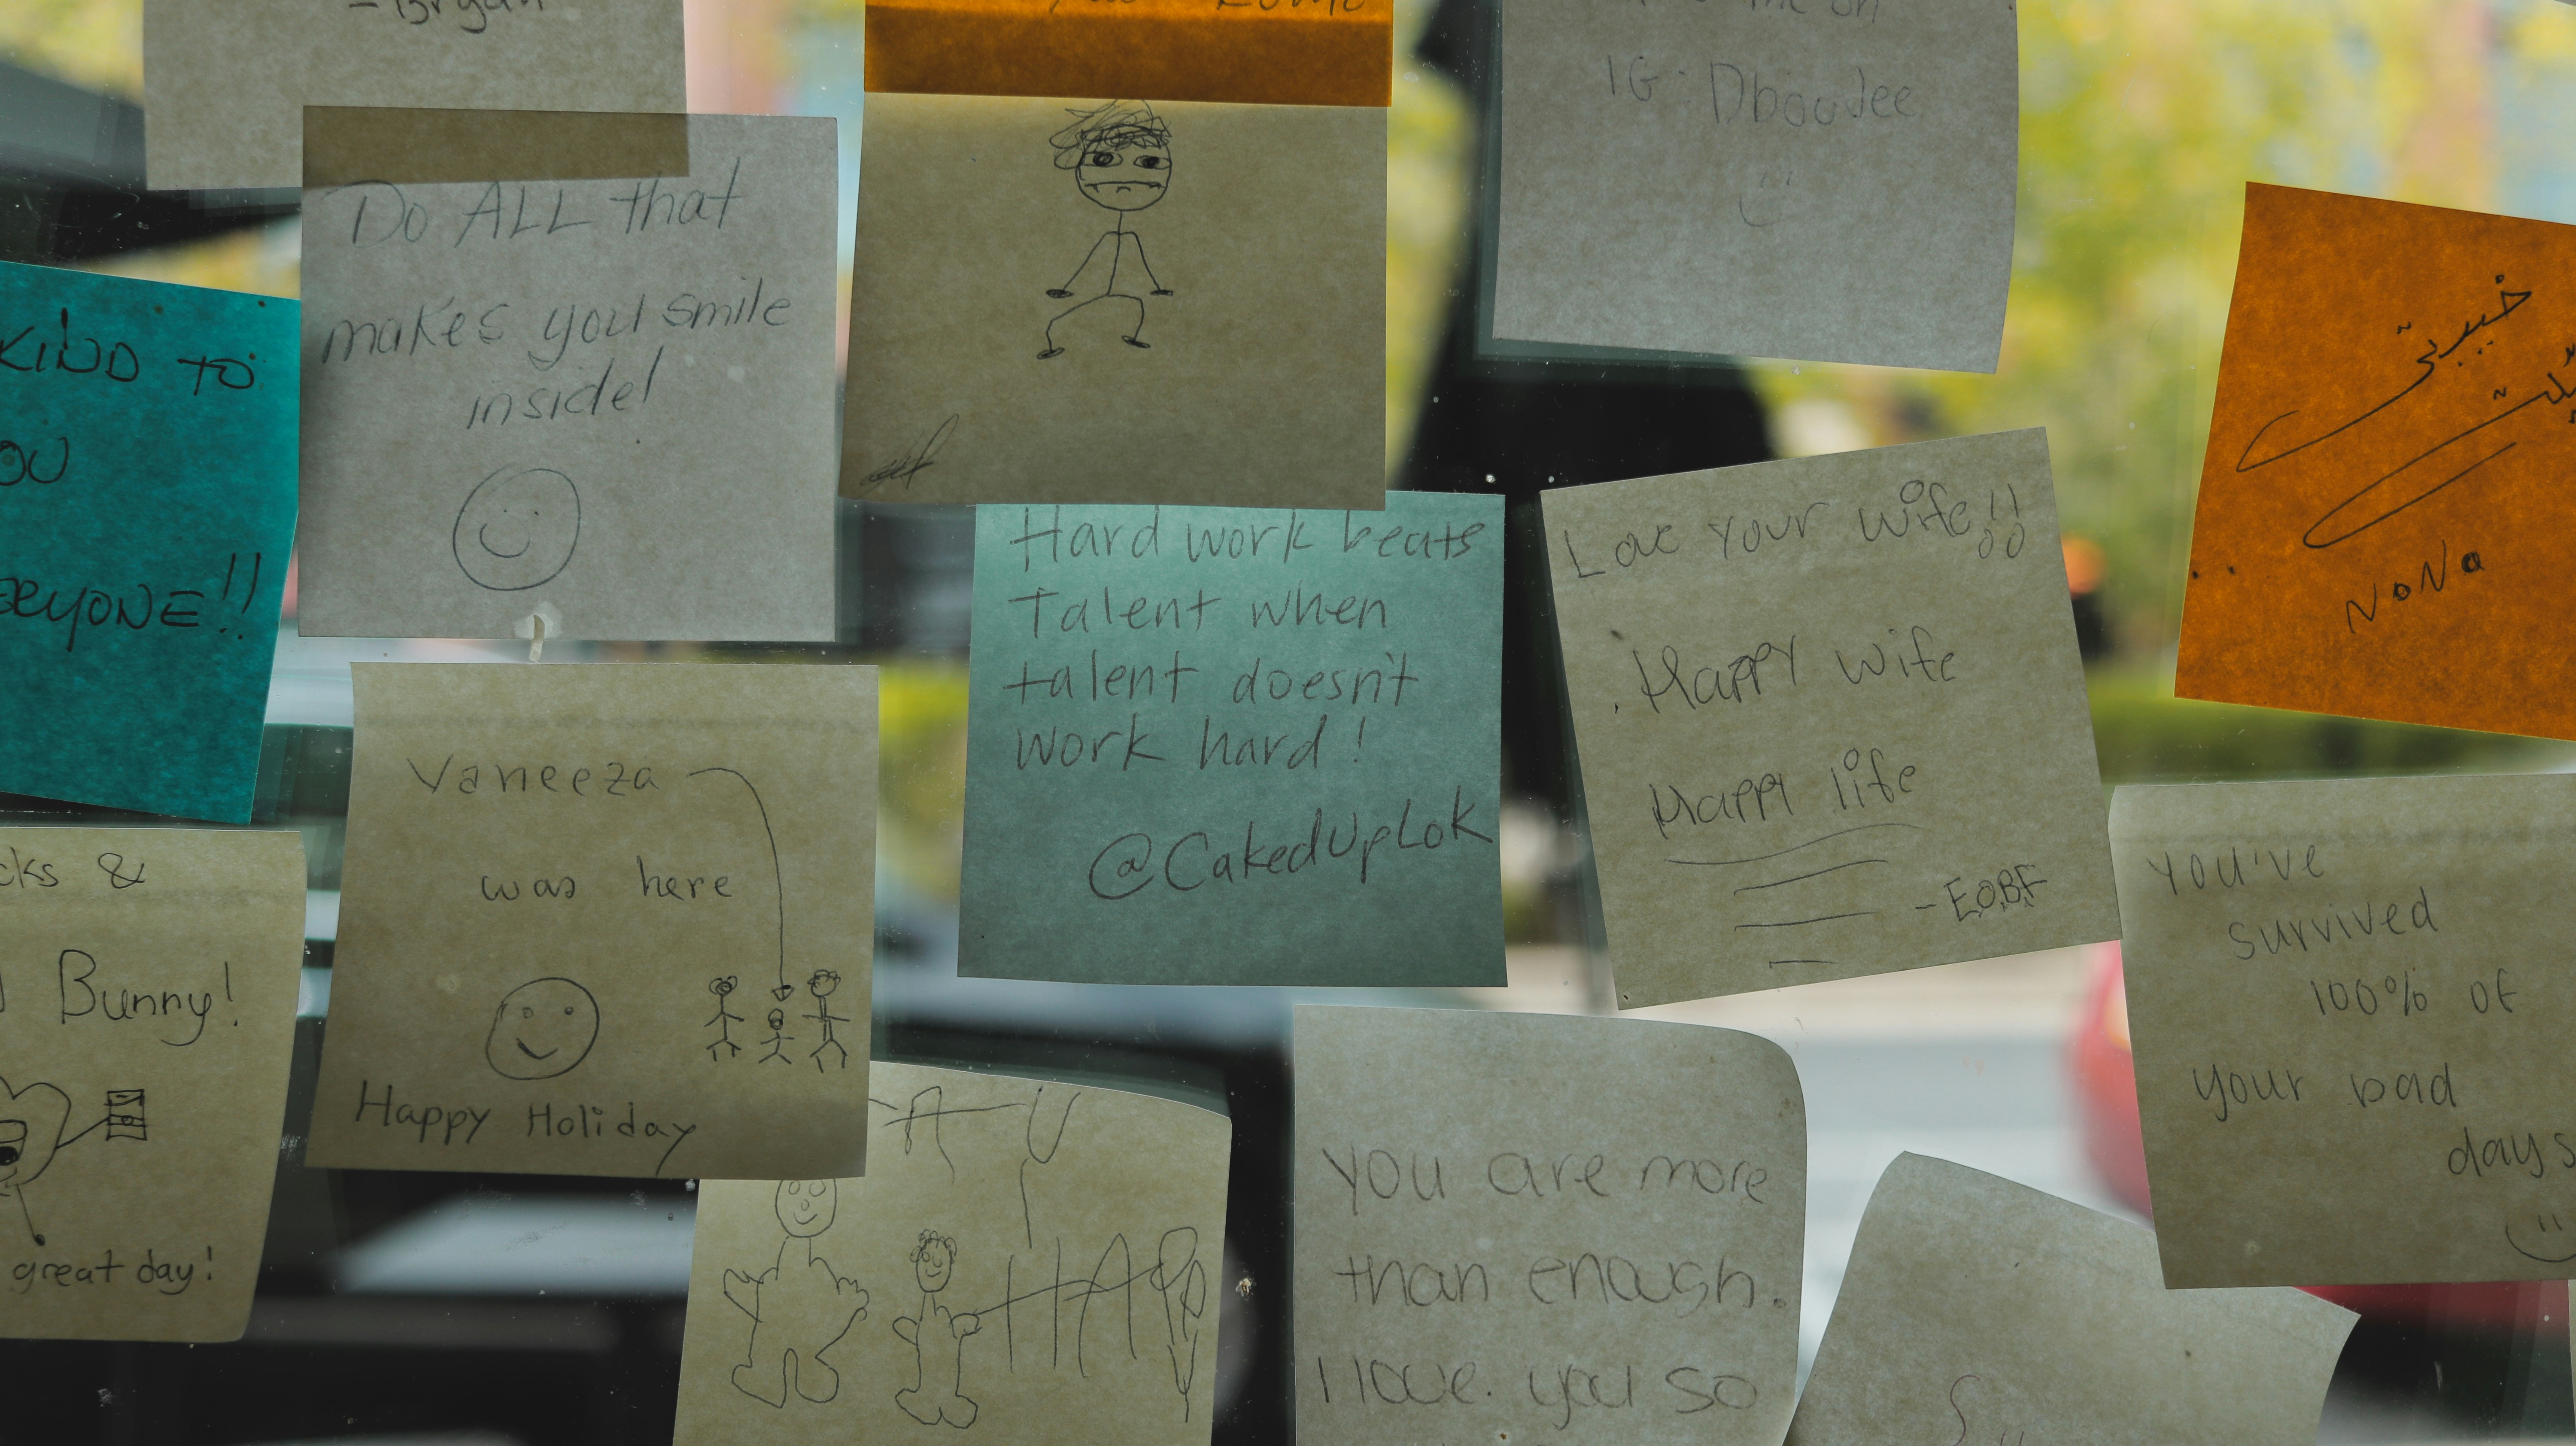 -Bryan
Do ALL that
makes you smile
inside!
IG: Dboujee
KIND TO
OU
ERYONE!!
Hard work beats
Talent when
talent doesn't
work hard!
@CakedUpLok
Love your wife!!
Happy wife
Happy life
-E.O.B.F
NoNa
Vaneeza
was here
Happy Holiday
cks &
Bunny!
great day!
You've
survived
100% of
your bad
days
HAPP
You are more
than enough.
I love you so